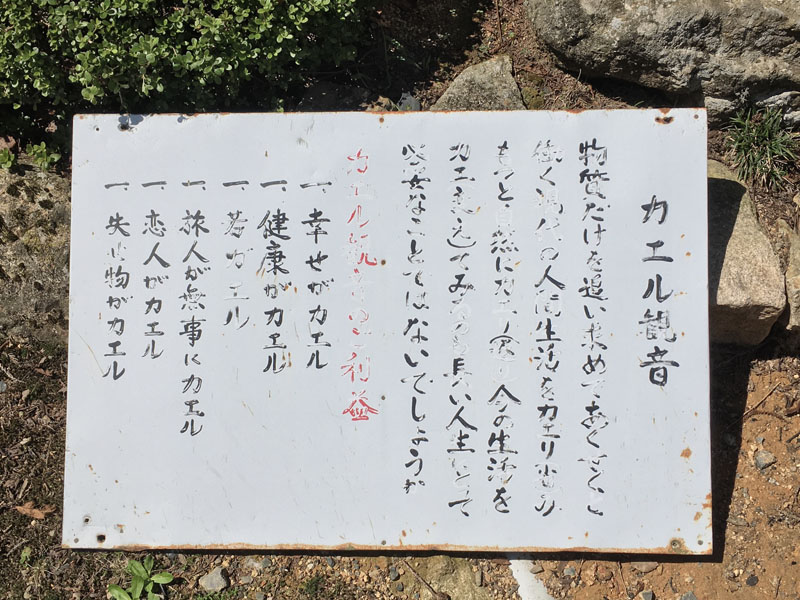 カエル観音
物質だけを追い求めてあくせくと
働く現代の人間生活をカエリみ
もっと自然にカエり今の生活を
カエてみるのも長い人生にとって
必要なことではないでしょうか
カエル観音のご利益
一、幸せがカエル
一、健康がカエル
一、若ガエル
一、旅人が無事にカエル
一、恋人がカエル
一、失せ物がカエル